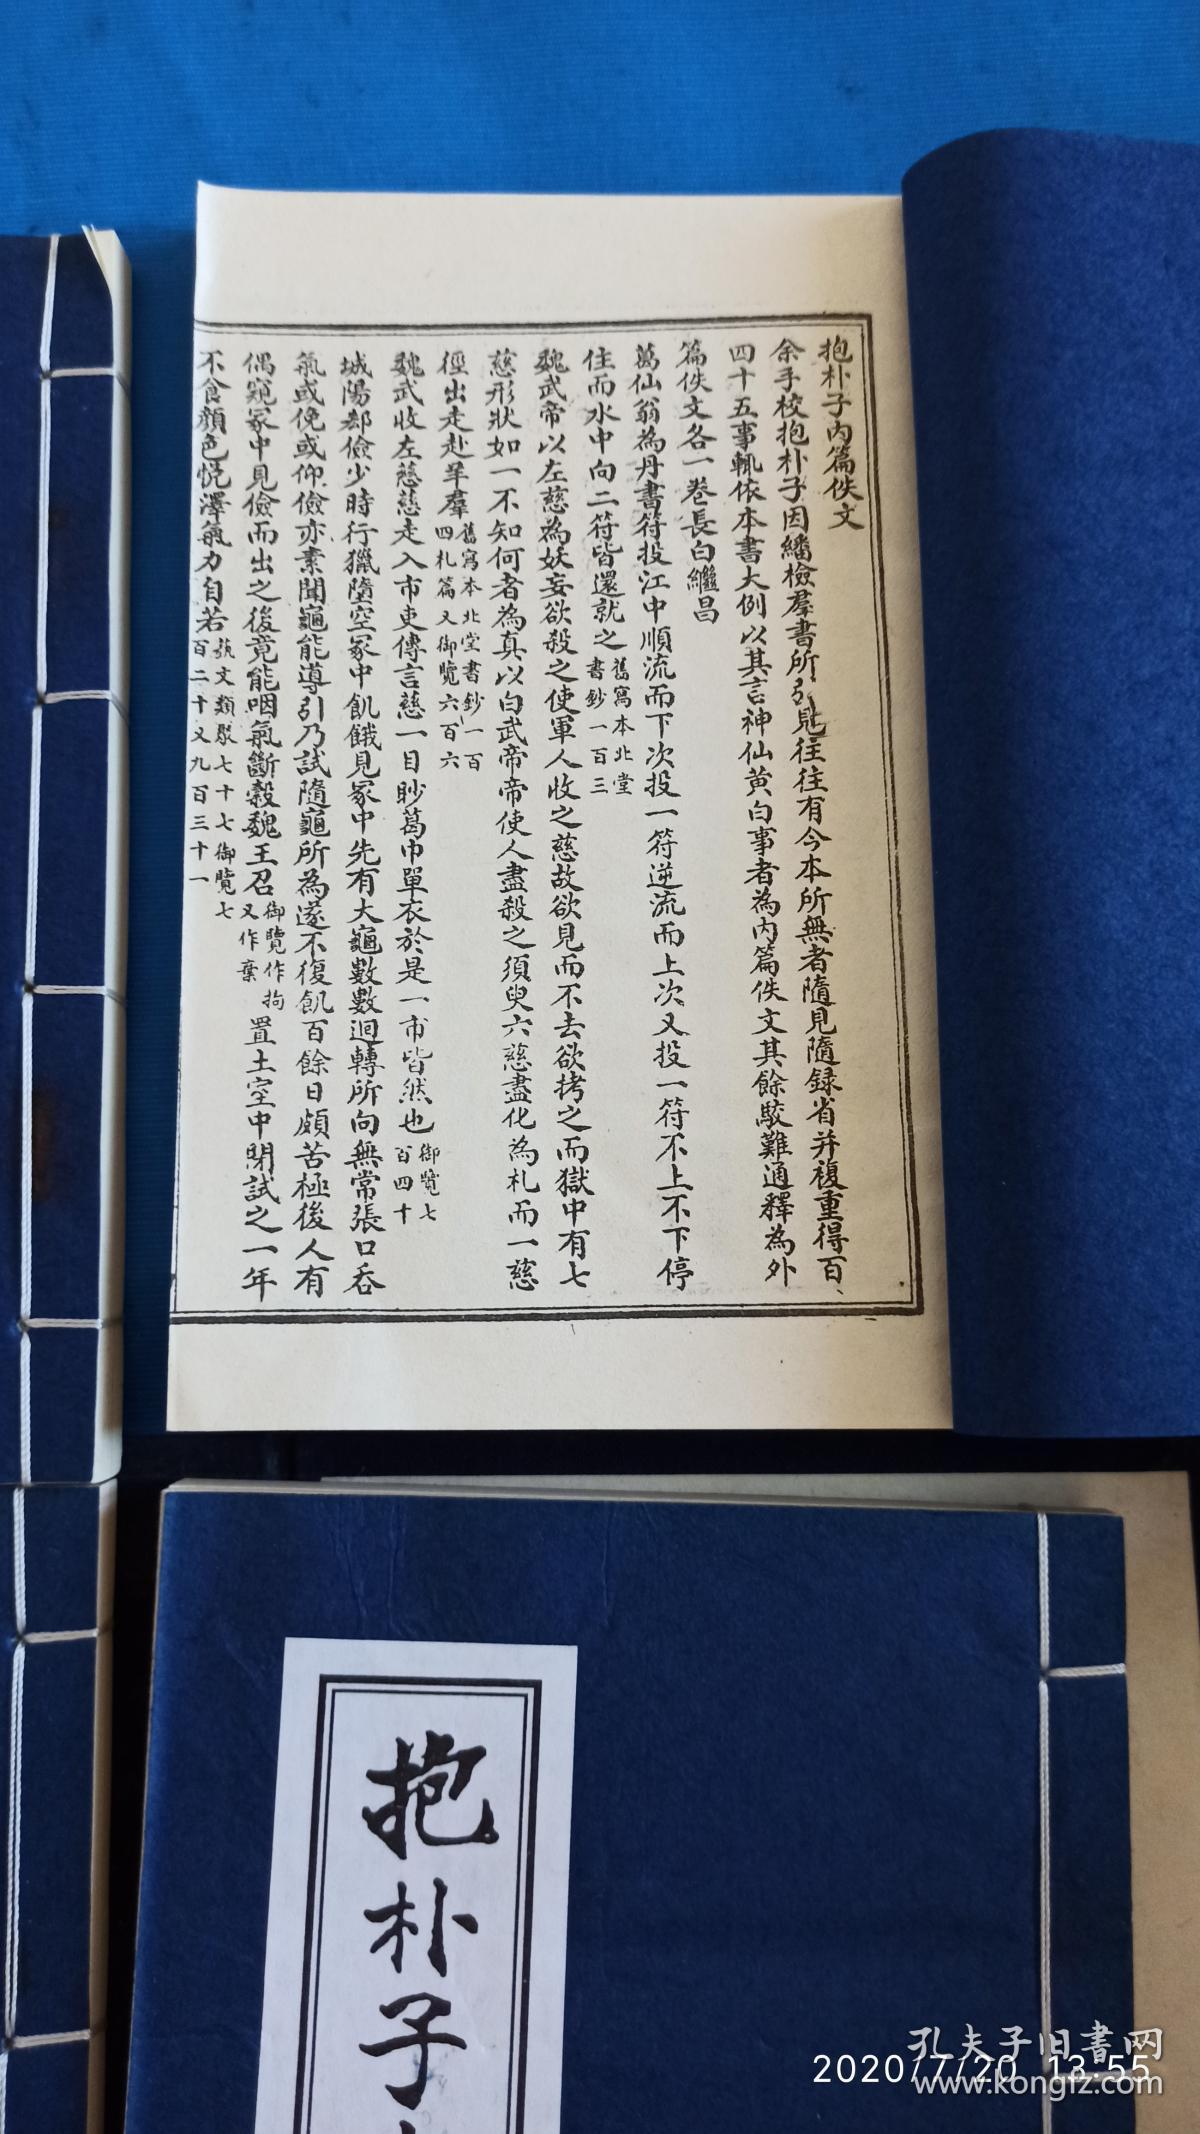 抱朴子內篇佚文
余手校抱朴子因繙檢羣書所引見往往有今本所無者隨見隨録省并複重得百
四十五事輒依本書大例以其言神仙黃白事者為內篇佚文其餘駮難通釋為外
篇佚文各一卷長白繼昌
葛仙翁為丹書符投江中順流而下次投一符逆流而上次又投一符不上不下停
住而水中向二符皆還就之舊寫本北堂書鈔一百三
魏武帝以左慈為妖妄欲殺之使軍人收之慈故欲見而不去欲拷之而獄中有七
慈形狀如一不知何者為真以白武帝帝使人盡殺之須臾六慈盡化為札而一慈
徑出走赴羊羣舊寫本北堂書鈔一百四札篇又御覽六百六
魏武收左慈慈走入市吏傳言慈一目眇葛巾單衣於是一市皆然也御覽七百四十
城陽郄儉少時行獵墮空冢中飢餓見冢中先有大龜數數迴轉所向無常張口吞
氣或俛或仰儉亦素聞龜能導引乃試隨龜所為遂不復飢百餘日頗苦極後人有
偶窺冢中見儉而出之後竟能咽氣斷穀魏王召御覽作拘又作棄置土室中閉試之一年
不食顏色悅澤氣力自若藝文類聚七十七御覽七百二十又九百三十一
抱朴子
孔夫子旧書网
2020/7/20 13:55
www.kongfz.com